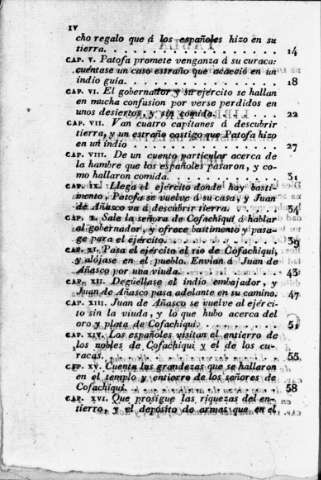 IV
cho regalo que á los españoles hizo en su
tierra. . . . . . . . . . . . . . . . . . 14
CAP. V. Patofa promete venganza á su curaca:
cuéntase un caso estraño que acaeció en un
indio guia. . . . . . . . . . . . . . . . 18
CAP. VI. El gobernador y su ejército se hallan
en mucha confusion por verse perdidos en
unos desiertos, y sin comida. . . . . . . 22
CAP. VII. Van cuatro capitanes á descubrir
tierra, y un estraño castigo que Patofa hizo
en un indio . . . . . . . . . . . . . . . 27
CAP. VIII. De un cuento particular acerca de
la hambre que los españoles pasaron, y co-
mo hallaron comida. . . . . . . . . . . . 31
CAP. IX. Llega el ejército donde hay basti-
mento, Patofa se vuelve á su casa, y Juan
de Añasco va á descubrir tierra. . . . . 34
CAP. X. Sale la señora de Cofachiqui á hablar
al gobernador, y ofrece bastimento y pasa-
ge para el ejército. . . . . . . . . . . . 39
CAP. XI. Pasa el ejército el rio de Cofachiqui,
y alójase en el pueblo. Envian á Juan de
Añasco por una viuda. . . . . . . . . . . 43
CAP. XII. Degüéllase el indio embajador, y
Juan de Añasco pasa adelante en su camino. 47
CAP. XIII. Juan de Añasco se vuelve al ejérci-
to sin la viuda, y lo que hubo acerca del
oro y plata de Cofachiqui. . . . . . . . . 51
CAP. XIV. Los españoles visitan el entierro de
los nobles de Cofachiqui y el de los cu-
racas. . . . . . . . . . . . . . . . . . . 55
CAP. XV. Cuenta las grandezas que se hallaron
en el templo y entierro de los señores de
Cofachiqui. . . . . . . . . . . . . . . . 58
CAP. XVI. Que prosigue las riquezas del en-
tierro, y el depósito de armas que en el